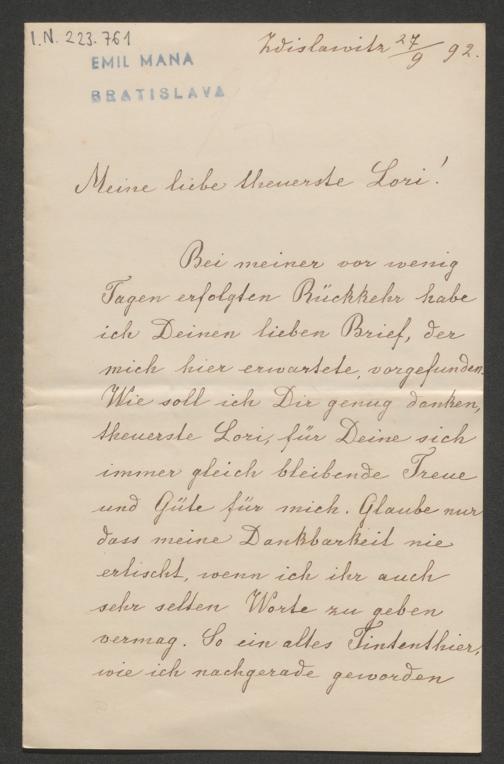 I.N. 223.761
EMIL MANA
BRATISLAVA
Zdislawitz 27/9 92.
Meine liebe theuerste Lori!
Bei meiner vor wenig
Tagen erfolgten Rückkehr habe
ich Deinen lieben Brief, der
mich hier erwartete, vorgefunden.
Wie soll ich Dir genug danken,
theuerste Lori, für Deine sich
immer gleich bleibende Treue
und Güte für mich. Glaube nur
dass meine Dankbarkeit nie
erlischt, wenn ich ihr auch
sehr selten Worte zu geben
vermag. So ein altes Tintenthier,
wie ich nachgerade geworden